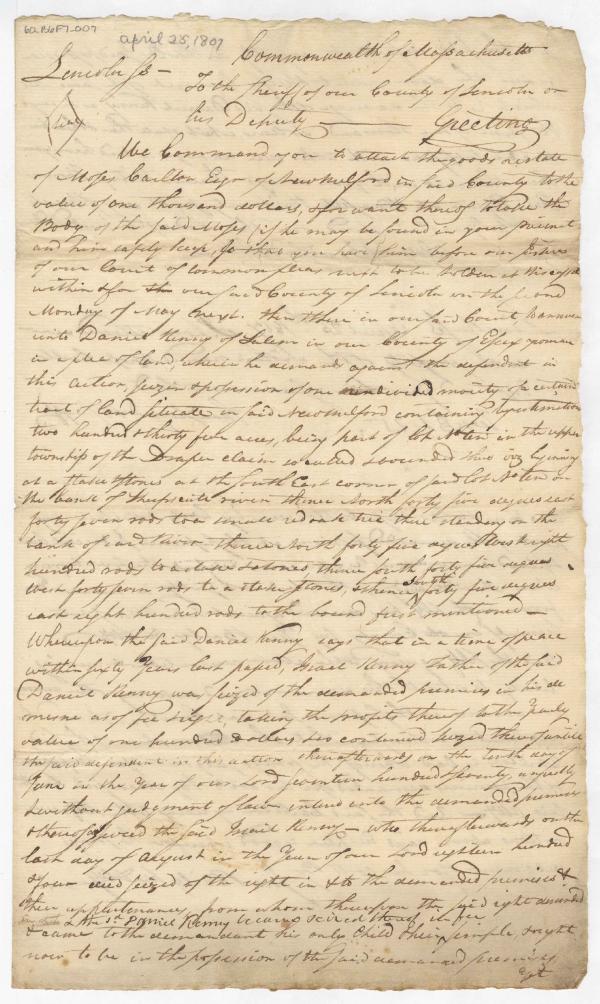 60.B6F7.007
april 25, 1807
Commonwealth of Massachusetts
Lincoln Ss—
To the Sheriff of our County of Lincoln or
his Deputy — Greeting
Seal
We Command you to attach the goods or estate
of Moses Carlton Esqr of Newmilford in said County to the
value of one thousand dollars, & for want thereof to take the
Body of the said Moses if he may be found in your precinct
and him safely keep, so that you have him before our Justices
of our Court of Common pleas next to be holden at Wiscasset
within & for our said County of Lincoln on the second
Monday of May next. then & there in our said Court to answer
unto Daniel Kenny of Salem in our County of Essex yeoman
in a plea of land, wherein he demands against the defendent in
this action, seizin & possession of one undivided moiety of a certain
tract of land situate in said Newmilford containing by estimation
two hundred & thirty five acres, being part of lot No ten in the upper
township of the Draper claim so called & bounded thus viz begining
at a stake & stones at the South East corner of said lot No ten on
the bank of Sheepscute river thence North forty five degrees east
forty seven rods to a small red oak tree there standing on the
bank of said river thence North forty five degrees West eight
hundred rods to a stake & stones, thence south forty five degrees
West forty seven rods to a stake & stones, & thence south forty five degrees
east eight hundred rods to the bound first mentioned—
Whereupon the said Daniel Kenny says that in a time of peace
within sixty Years last passed, Israel Kenny Father of the said
Daniel Kenny was seized of the demanded premises in his de
mesne as of fee simple, taking the profits thereof to the Yearly
value of one hundred dollars & so continued seized thereof untill
the said defendent in this action thereafterwards on the tenth day of
June in the Year of our Lord seventeen hundred seventy, unjustly
& without judgement of law entered into the demanded premises
& thereof disseized the said Israel Kenny— who thereafterwards on the
last day of August in the Year of our Lord eighteen hundred
& four died seized of the right in & to the demanded premises &
their appurtenances, from whom thereupon the said right descended
& the sd Daniel Kenny became seized thereof in fee
& came to the demandant his only Child & heir, simple, & ought
now to be in the possession of the said demanded premises
yet